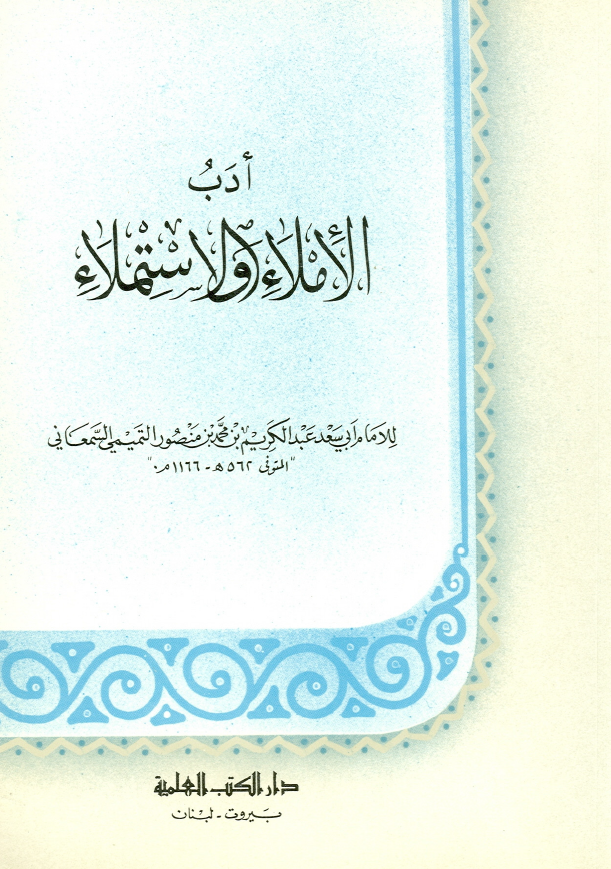 أدَبُ
الأِملَاءِ وَالاسْتِملَاءِ
للامَام أبي سَعد عَبد الكَريم بن محمَّد بن مَنصُور التَّميمي السَّمعَاني
"المتوفى ٥٦٢ هـ - ١١٦٦ م."
دار الكتب العلمية
بَيروت - لبنان